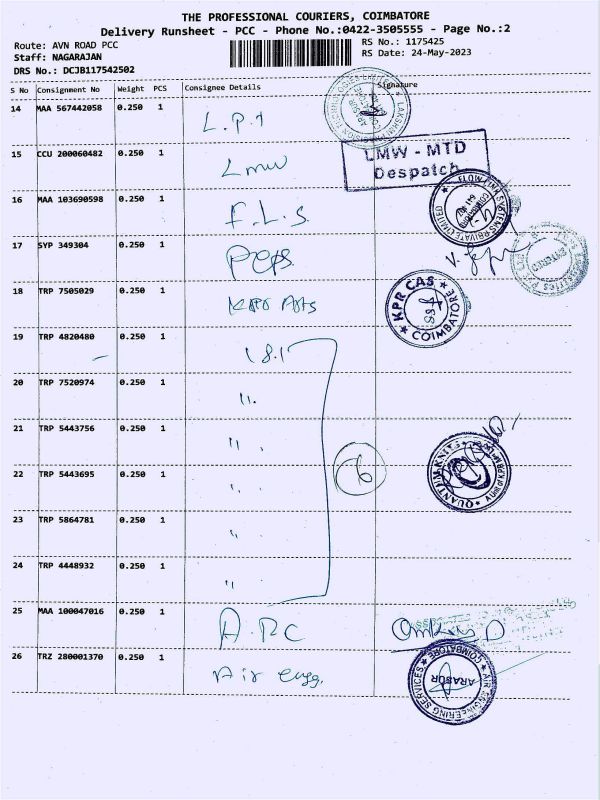 THE PROFESSIONAL COURIERS, COIMBATORE
Delivery Runsheet - PCC - Phone No.:0422-3505555 - Page No.:2
Route: AVN ROAD PCC
RS No.: 1175425
Staff: NAGARAJAN
RS Date: 24-May-2023
DRS No.: DCJB117542502
S No Consignment No Weight PCS Consignee Details Signature
14 MAA 567442058 0.250 1 L.P.1
15 CCU 200060482 0.250 1 Lmw
LMW - MTD
Despatch
16 MAA 103690598 0.250 1 F.L.S.
FLOWLINK SYSTEMS PRIVATE LIMITED
17 SYP 349304 0.250 1 Peps.
18 TRP 7505029 0.250 1 KPR Arts
KPR CAS
COIMBATORE
19 TRP 4820480 0.250 1
20 TRP 7520974 0.250 1 "
21 TRP 5443756 0.250 1 "
22 TRP 5443695 0.250 1 "
6
QUANTUM KNITS
23 TRP 5864781 0.250 1 "
24 TRP 4448932 0.250 1 "
25 MAA 100047016 0.250 1 A.RC
26 TRZ 280001370 0.250 1 Air engg.
AIR ENGINEERING SERVICES
COIMBATORE
ARASUR